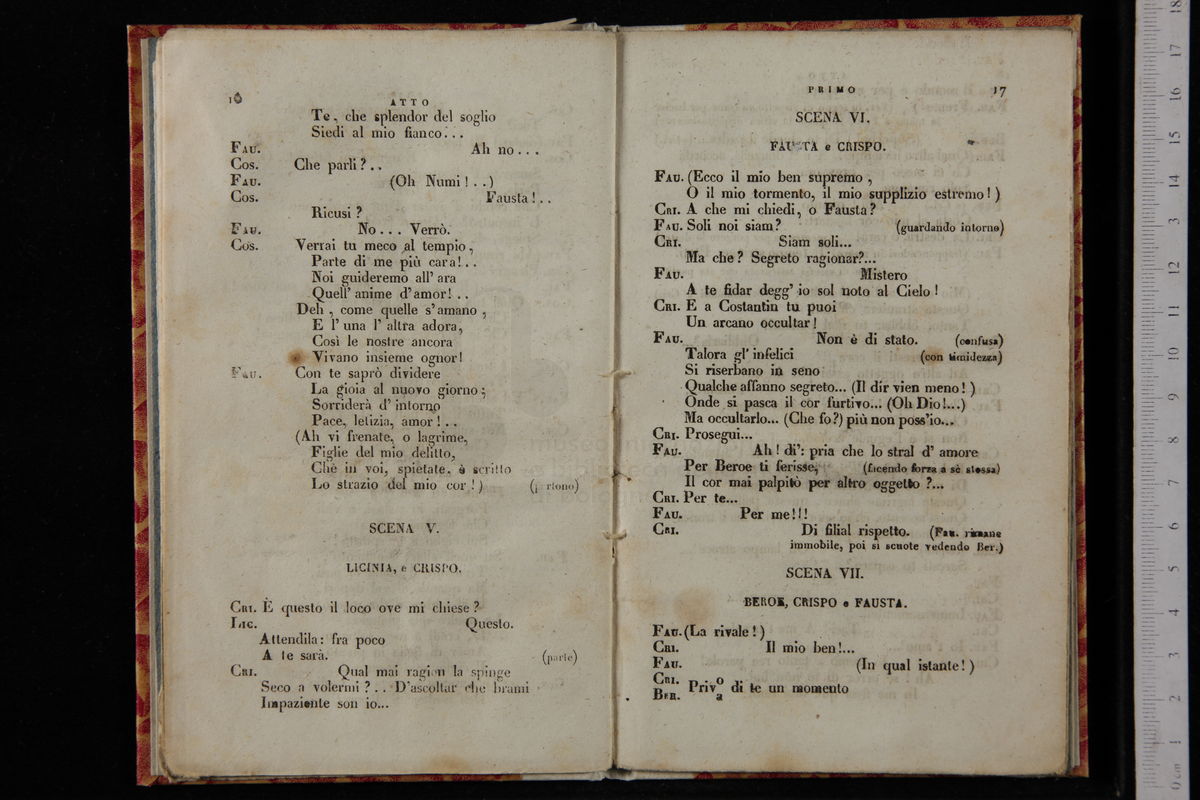 16
ATTO
Te, che splendor del soglio
Siedi al mio fianco...
FAU. Ah no...
COS. Che parli?..
FAU. (Oh Numi!..)
COS. Fausta!..
Ricusi?
FAU. No... Verrò.
COS. Verrai tu meco al tempio,
Parte di me più cara!..
Noi guideremo all' ara
Quell' anime d' amor!..
Deh, come quelle s' amano,
E l' una l' altra adora,
Così le nostre ancora
Vivano insieme ognor!
FAU. Con te saprò dividere
La gioia al nuovo giorno;
Sorriderà d' intorno
Pace, letizia, amor!..
(Ah vi frenate, o lagrime,
Figlie del mio delitto,
Che in voi, spietate, è scritto
Lo strazio del mio cor!) (partono)
SCENA V.
LICINIA, e CRISPO.
CRI. È questo il loco ove mi chiese?
LIC. Questo.
Attendila: fra poco
A te sarà. (parte)
CRI. Qual mai ragion la spinge
Seco a volermi?.. D'ascoltar che brami
Impaziente son io...
PRIMO 17
SCENA VI.
FAUSTA e CRISPO.
FAU. (Ecco il mio ben supremo,
O il mio tormento, il mio supplizio estremo!)
CRI. A che mi chiedi, o Fausta?
FAU. Soli noi siam? (guardando intorno)
CRI. Siam soli...
Ma che? Segreto ragionar?...
FAU. Mistero
A te fidar degg' io sol noto al Cielo!
CRI. E a Costantin tu puoi
Un arcano occultar!
FAU. Non è di stato. (confusa)
Talora gl' infelici (con timidezza)
Si riserbano in seno
Qualche affanno segreto... (Il dir vien meno!)
Onde si pasca il cor furtivo... (Oh Dio!...)
Ma occultarlo... (Che fo?) più non poss'io...
CRI. Prosegui...
FAU. Ah! di': pria che lo stral d' amore
Per Beroe ti ferisse, (facendo forza a sè stessa)
Il cor mai palpitò per altro oggetto?...
CRI. Per te...
FAU. Per me!!!
CRI. Di filial rispetto. (Fau. rimane
immobile, poi si scuote vedendo Ber.)
SCENA VII.
BEROE, CRISPO e FAUSTA.
FAU. (La rivale!)
CRI. Il mio ben!...
FAU. (In qual istante!)
CRI. Privo di te un momento
BER. a